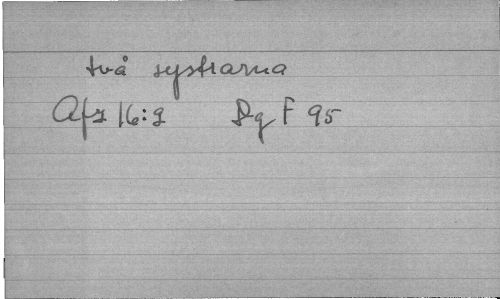 två systrarna
Afz 16:2 Dg F 95